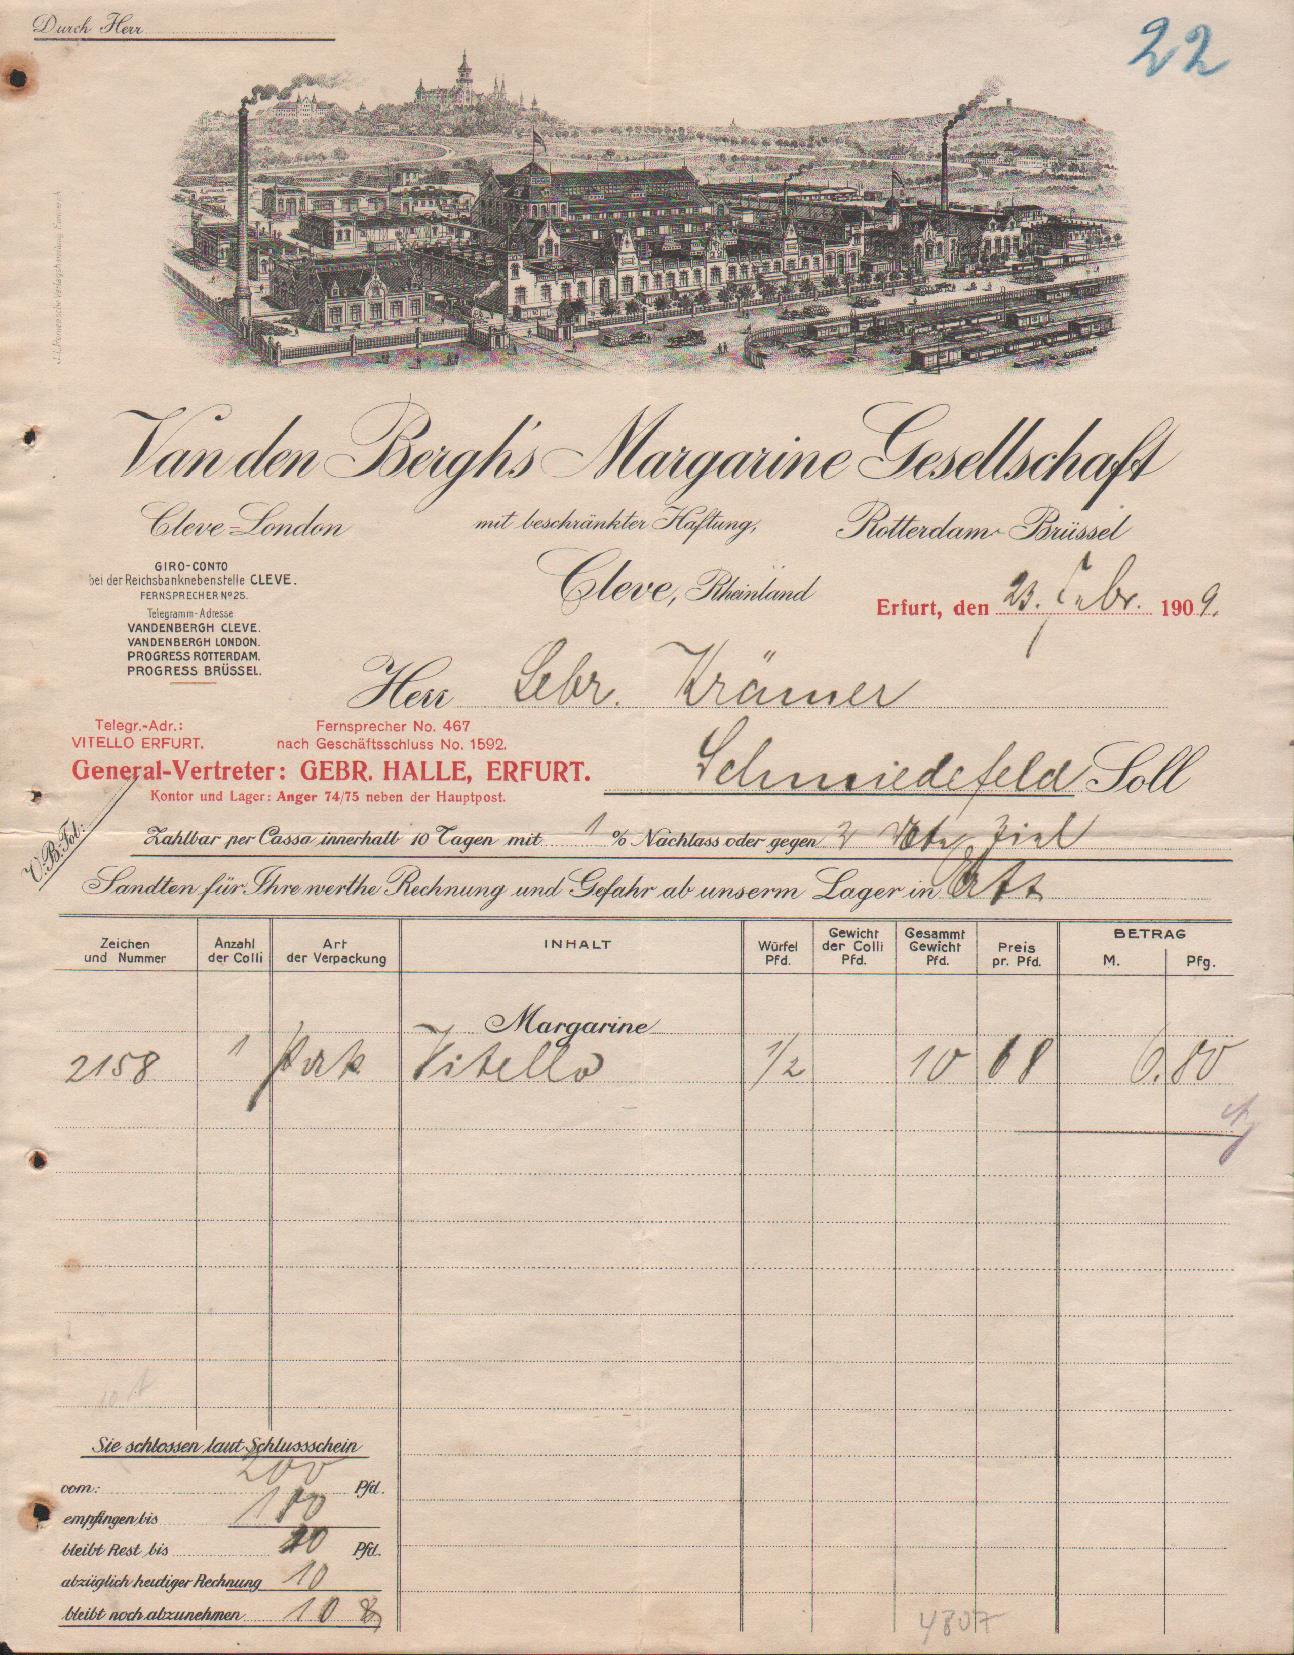 Durch Herr
22
J. L. Romen'sche Verlagshandlung, Emmerich
Van den Bergh's Margarine Gesellschaft
Cleve=London mit beschränkter Haftung, Rotterdam-Brüssel
Cleve, Rheinland
GIRO-CONTO
bei der Reichsbanknebenstelle CLEVE.
FERNSPRECHER Nº 25.
Telegramm-Adresse
VANDENBERGH CLEVE.
VANDENBERGH LONDON.
PROGRESS ROTTERDAM.
PROGRESS BRÜSSEL.
Erfurt, den 23. Febr. 1909.
Herr Gebr. Krämer
Telegr.-Adr.:
VITELLO ERFURT.
Fernsprecher No. 467
nach Geschäftsschluss No. 1592.
General-Vertreter: GEBR. HALLE, ERFURT.
Kontor und Lager: Anger 74/75 neben der Hauptpost.
Schmiedefeld Soll
V. B. Fol:
Zahlbar per Cassa innerhalb 10 Tagen mit 1 % Nachlass oder gegen Ziel
Sandten für Ihre werthe Rechnung und Gefahr ab unserm Lager in Erft
Zeichen und Nummer
Anzahl der Colli
Art der Verpackung
INHALT
Würfel Pfd.
Gewicht der Colli Pfd.
Gesammt Gewicht Pfd.
Preis pr. Pfd.
BETRAG
M. Pfg.
Margarine
2158 1 Vitello 1/2 10 68 6.80
Sie schlossen laut Schlussschein
vom: 200 Pfd.
empfingen bis 180
bleibt Rest bis 20 Pfd.
abzüglich heutiger Rechnung 10
bleibt noch abzunehmen 10
4807